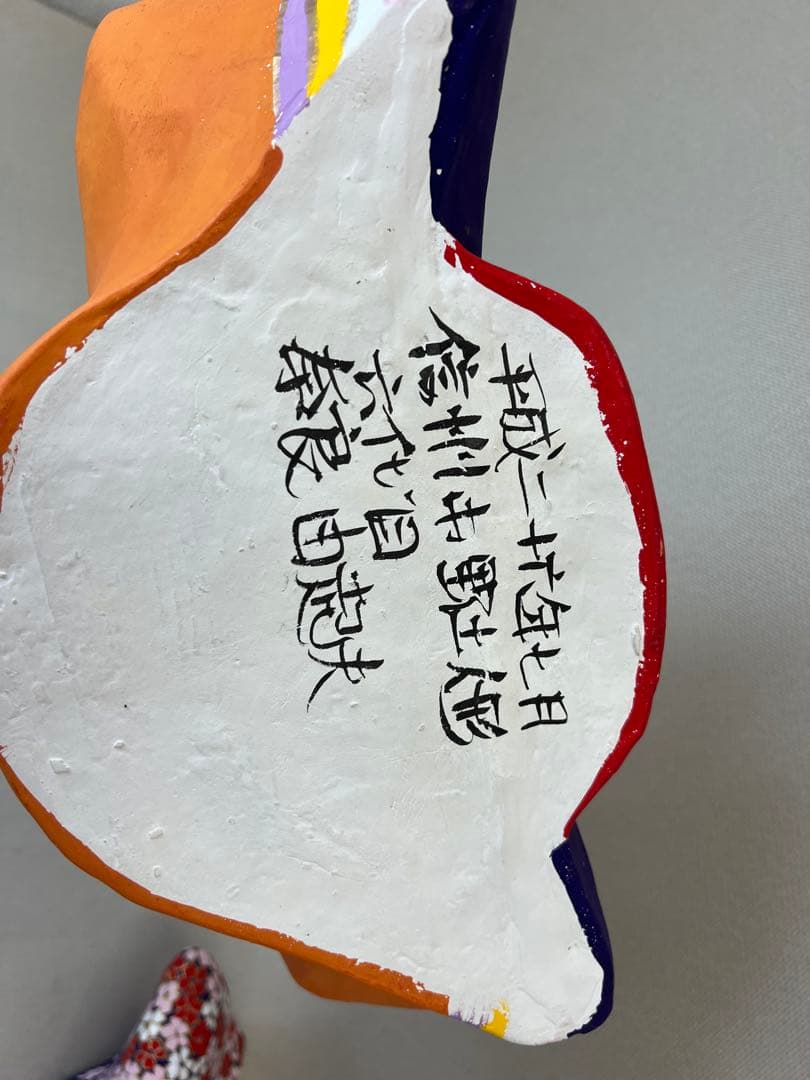 平成二十六年七月
信州中野土人形
六代目
奈良由起夫